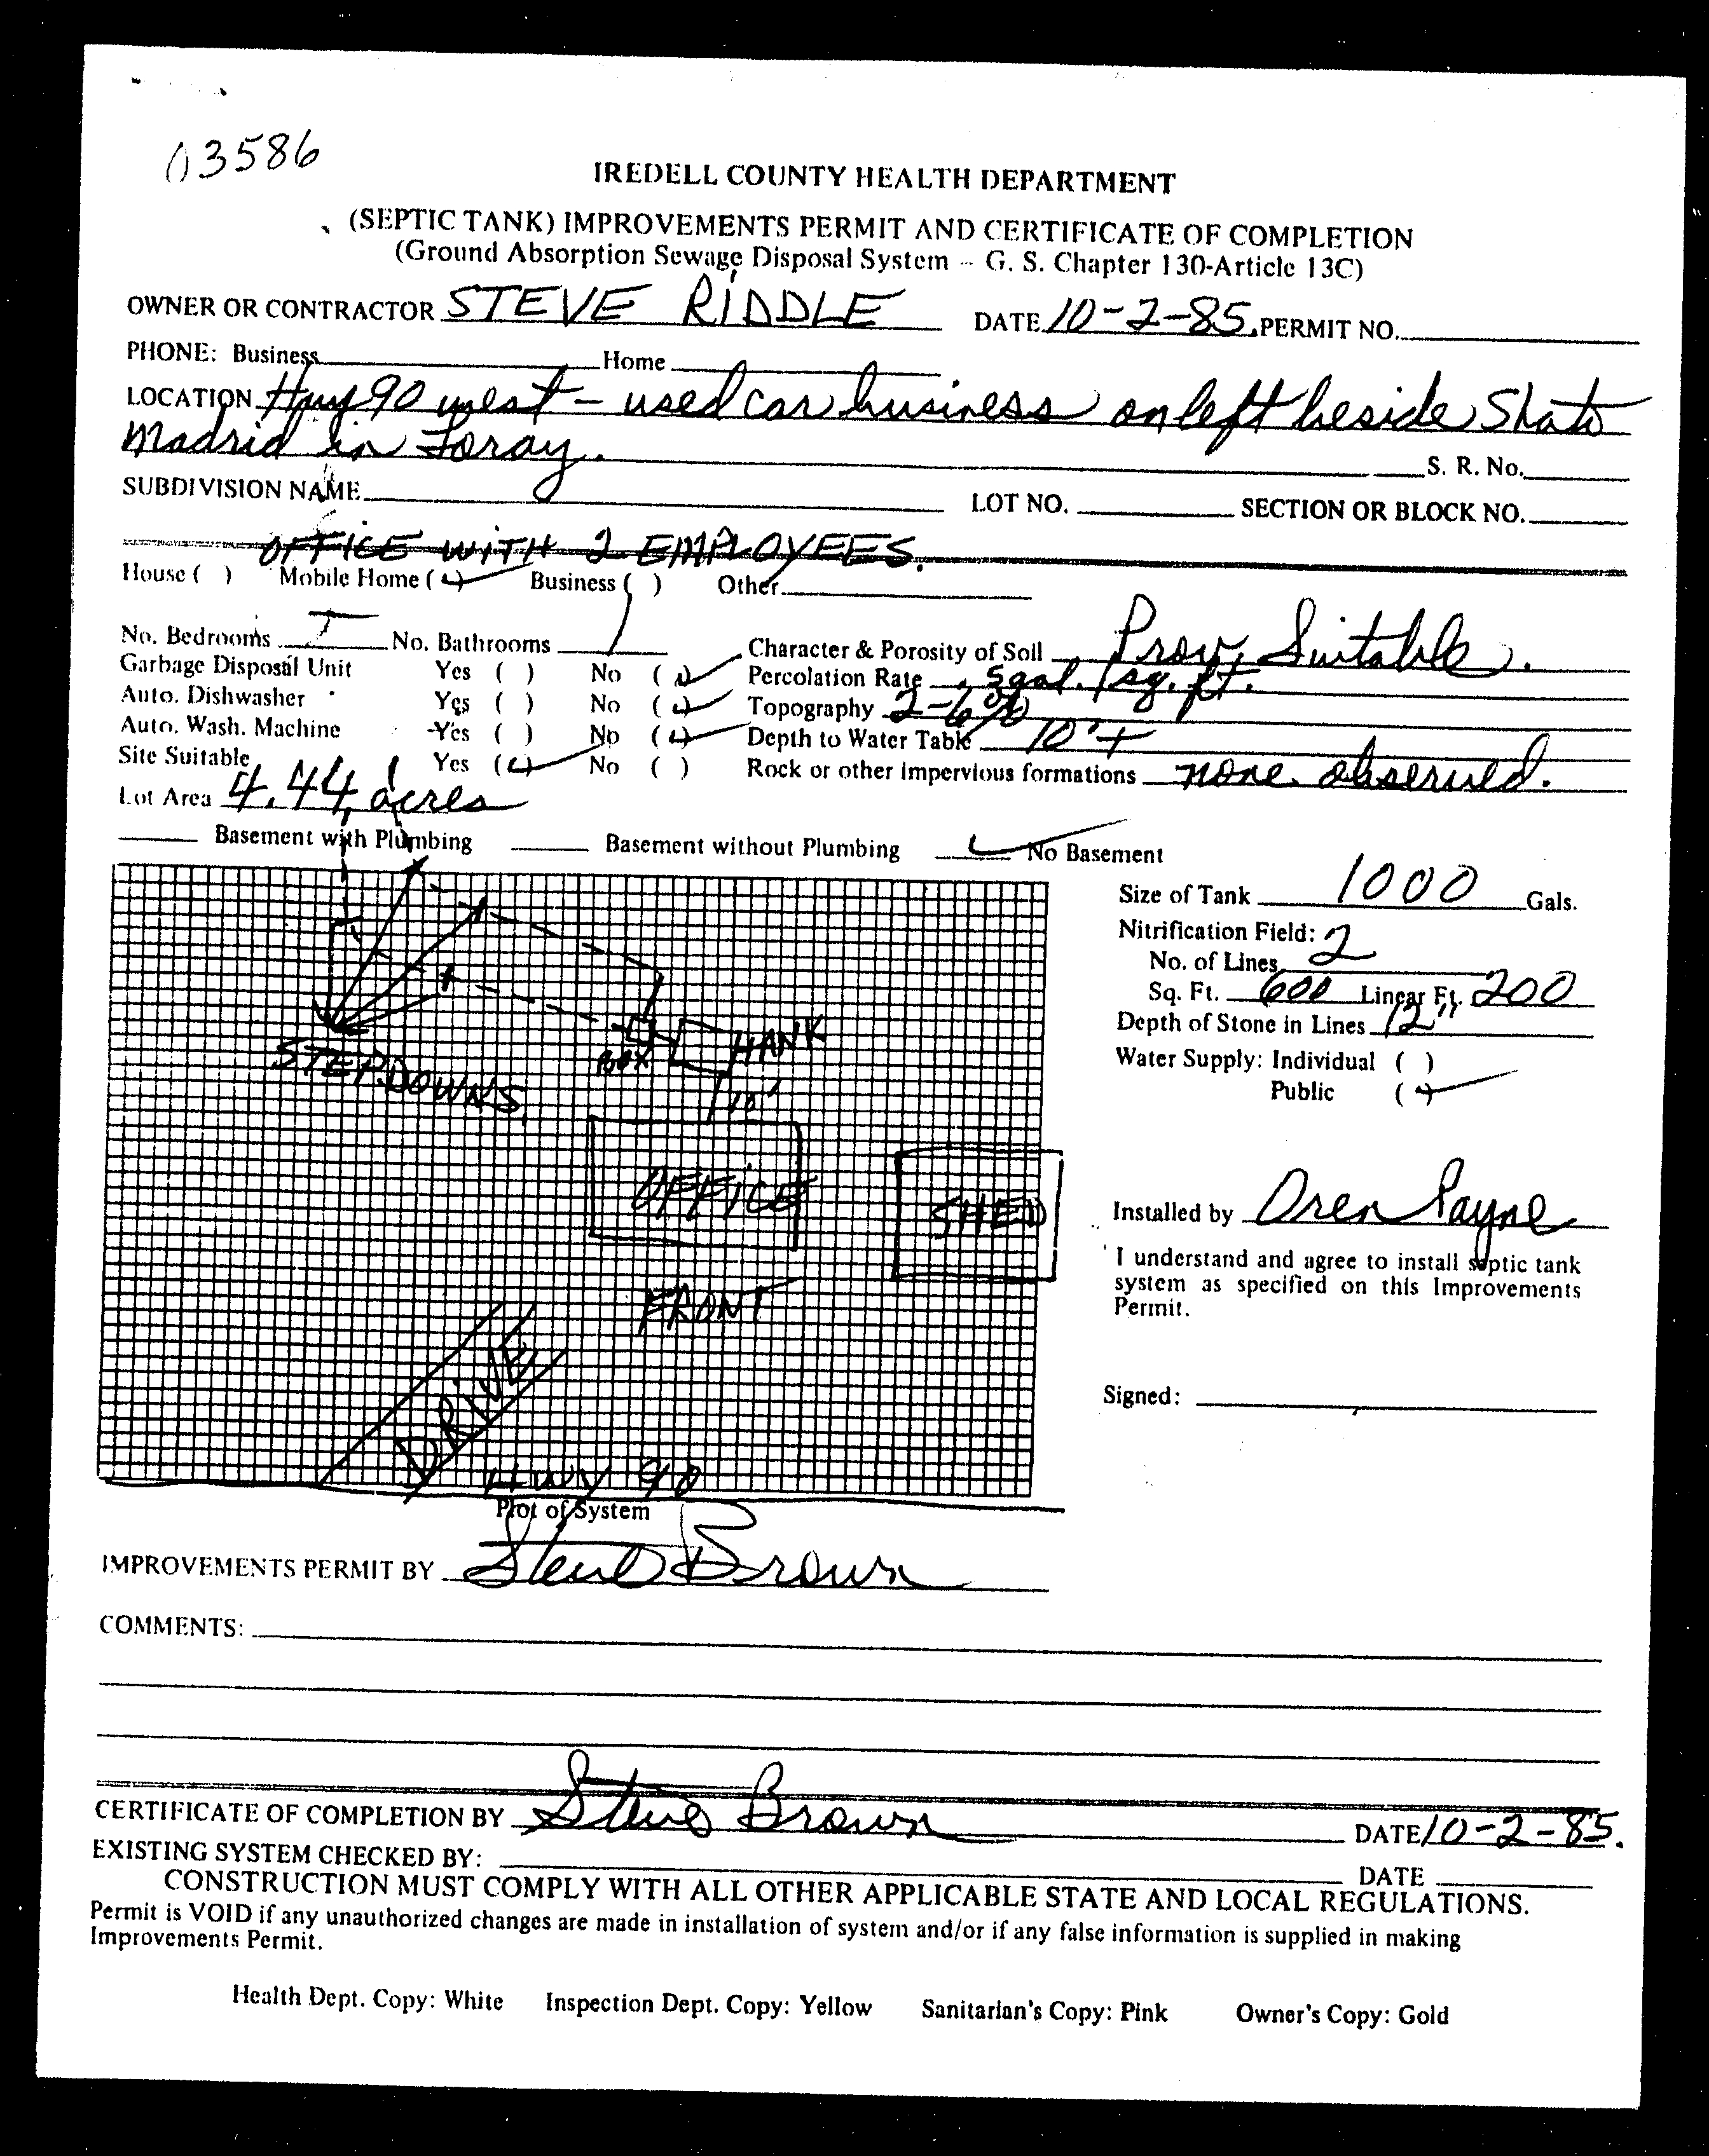 03586
IREDELL COUNTY HEALTH DEPARTMENT
(SEPTIC TANK) IMPROVEMENTS PERMIT AND CERTIFICATE OF COMPLETION
(Ground Absorption Sewage Disposal System - G. S. Chapter 130-Article 13C)
OWNER OR CONTRACTOR STEVE RIDDLE DATE 10-2-85 PERMIT NO.
PHONE: Business Home
LOCATION Hwy 90 west - used car business on left beside
Madrid in
S. R. No.
SUBDIVISION NAME LOT NO. SECTION OR BLOCK NO.
OFFICE WITH 2 EMPLOYEES.
House ( ) Mobile Home ( ) Business ( ) Other
No. Bedrooms No. Bathrooms Character & Porosity of Soil Prov. Suitable.
Garbage Disposal Unit Yes ( ) No ( ) Percolation Rate .5 gal. / sq. ft.
Auto. Dishwasher Yes ( ) No ( ) Topography 2-6%
Auto. Wash. Machine Yes ( ) No ( ) Depth to Water Table 10'+
Site Suitable Yes ( ) No ( ) Rock or other impervious formations none observed.
Lot Area 4.44 acres
Basement with Plumbing Basement without Plumbing No Basement
Size of Tank 1000 Gals.
Nitrification Field: 2
No. of Lines
Sq. Ft. 600 Linear Ft. 200
Depth of Stone in Lines 12"
Water Supply: Individual ( )
Public ( )
STEPDOWNS
BOX
TANK
10'
OFFICE
SHED
FRONT
DRIVE
HWY 90
Plot of System
Installed by Oren Payne
I understand and agree to install septic tank
system as specified on this Improvements
Permit.
Signed:
IMPROVEMENTS PERMIT BY Steve Brown
COMMENTS:
CERTIFICATE OF COMPLETION BY Steve Brown DATE 10-2-85.
EXISTING SYSTEM CHECKED BY: DATE
CONSTRUCTION MUST COMPLY WITH ALL OTHER APPLICABLE STATE AND LOCAL REGULATIONS.
Permit is VOID if any unauthorized changes are made in installation of system and/or if any false information is supplied in making
Improvements Permit.
Health Dept. Copy: White Inspection Dept. Copy: Yellow Sanitarian's Copy: Pink Owner's Copy: Gold